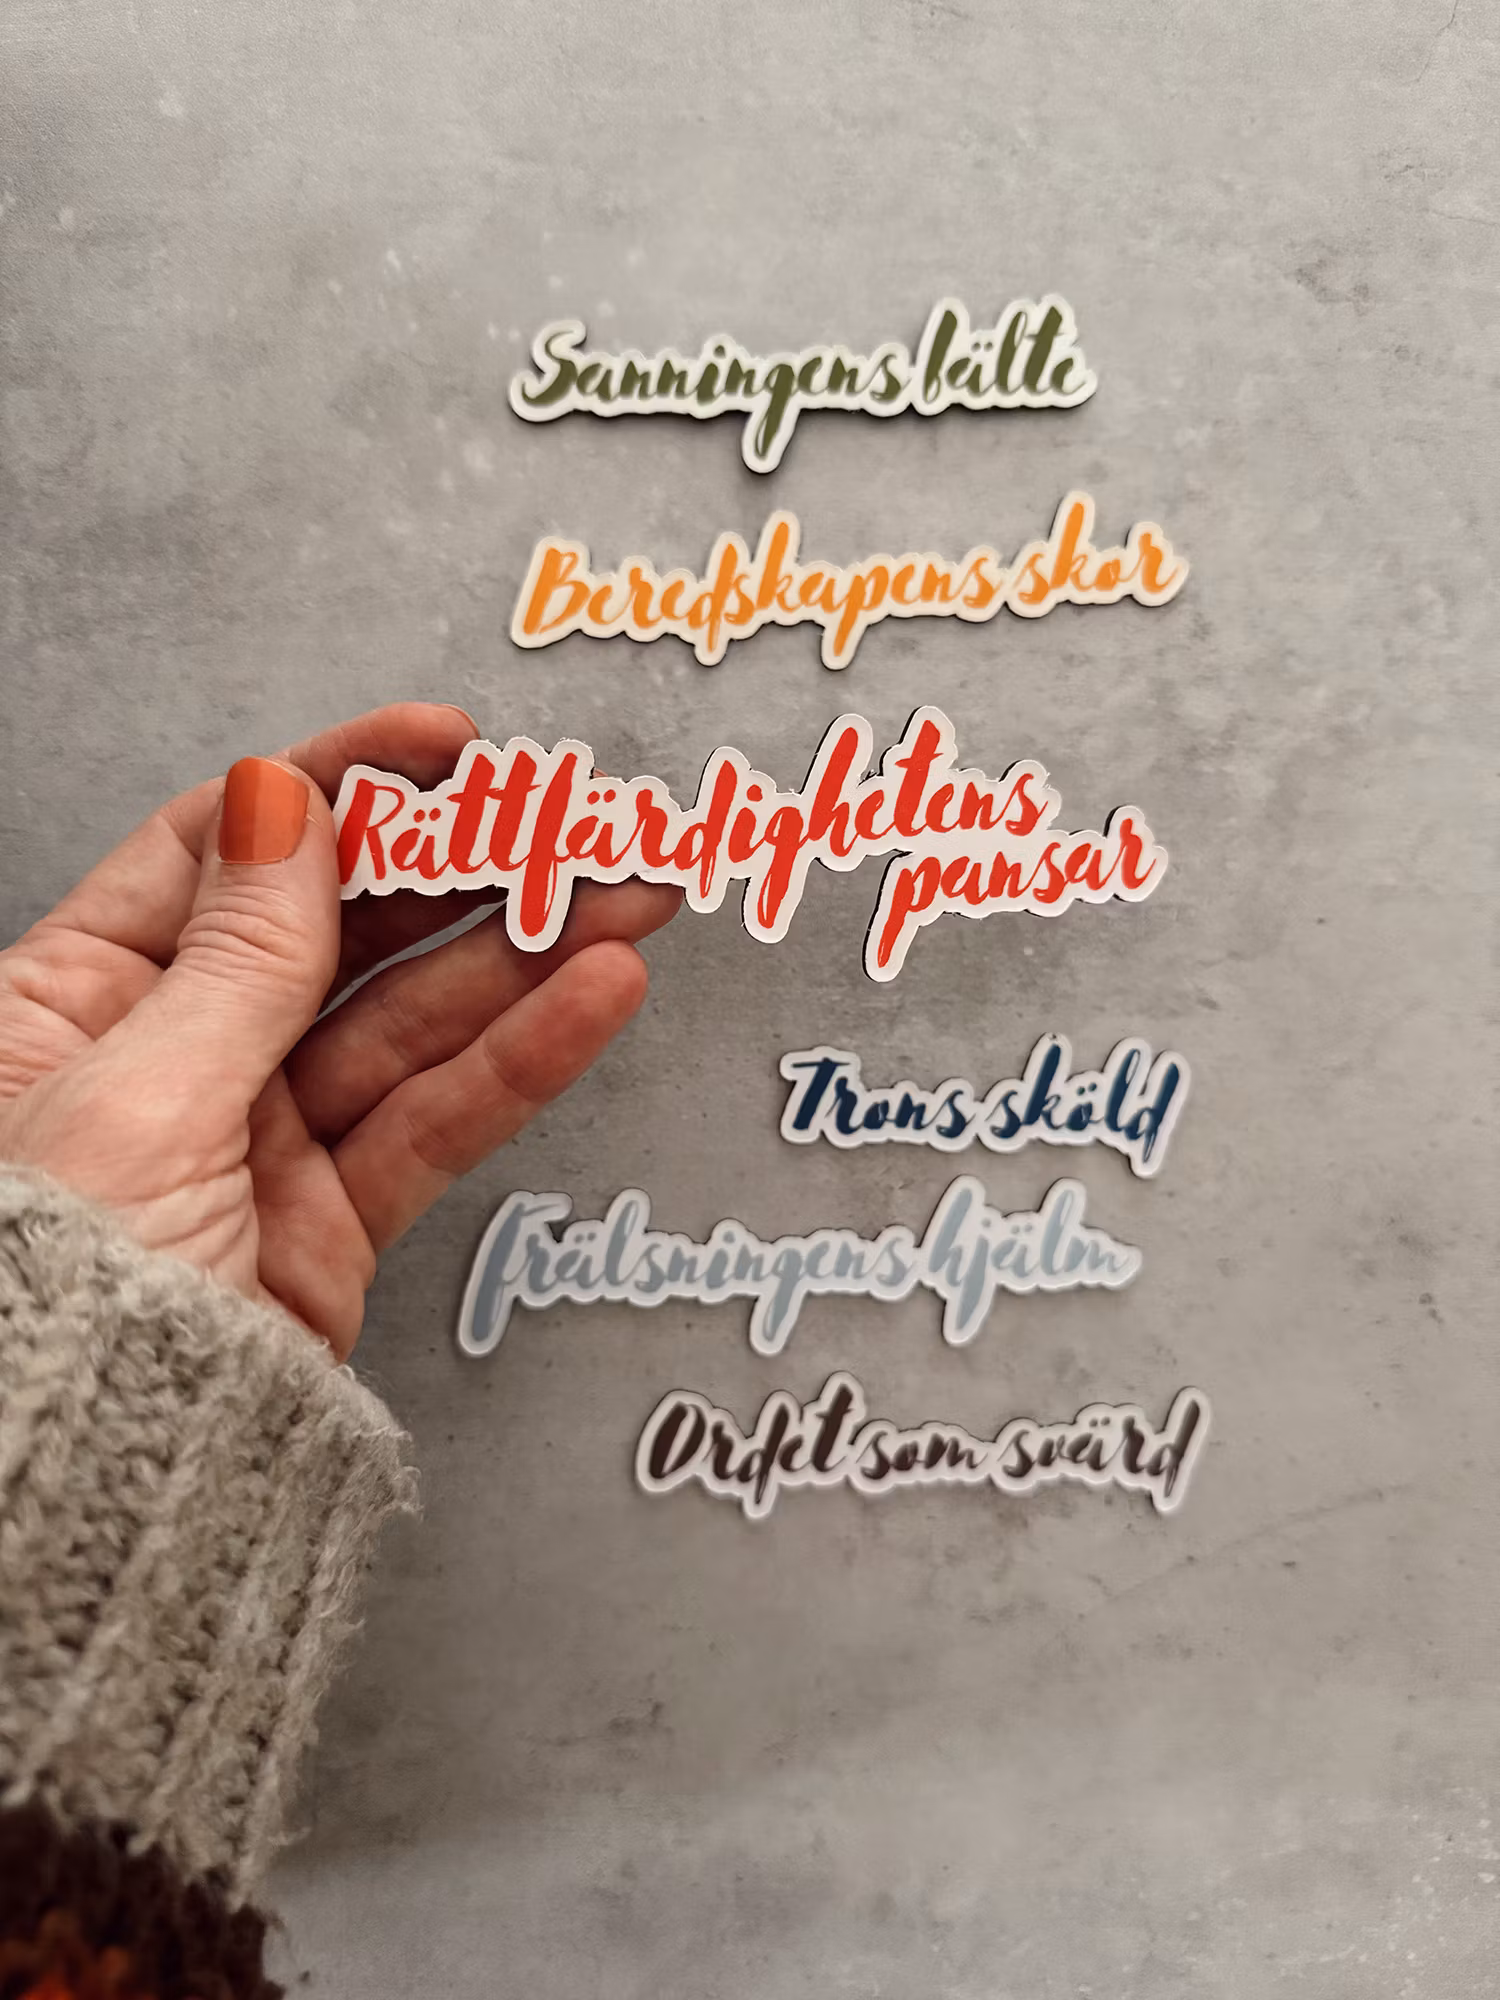 Sanningens bälte
Beredskapens skor
Rättfärdighetens
pansar
Trons sköld
Frälsningens hjälm
Ordet som svärd